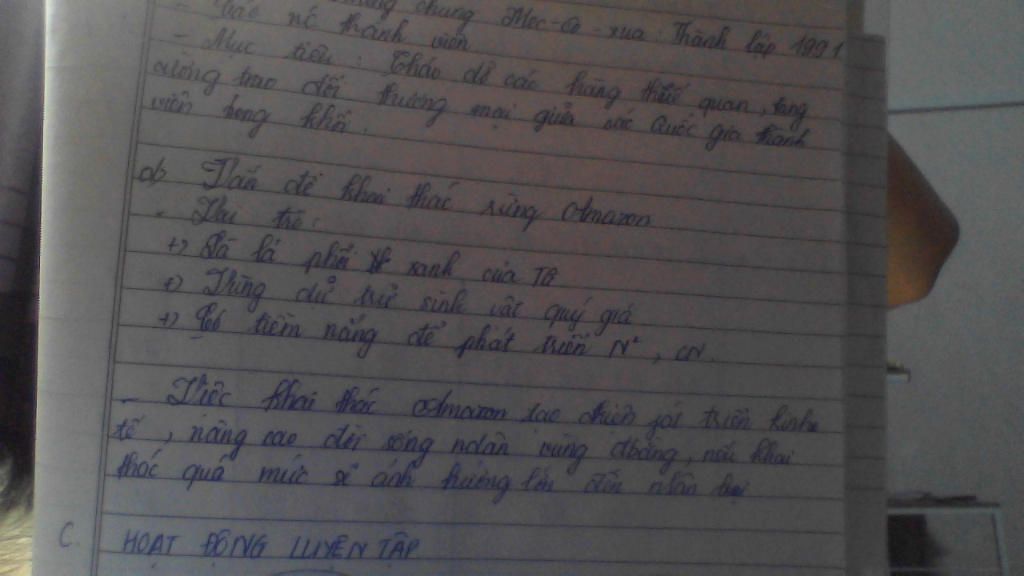 trường chung Mec-co-xua : Thành lập 1991
nc thành viên
- Mục tiêu : Tháo dỡ các hàng thuế quan, tăng
cường trao đổi thương mại giữa các Quốc gia thành
viên trong khối.
d) Vấn đề khai thác rừng Amazon
- Vai trò :
+) Là lá phổi xanh của TG
+) Vùng dự trữ sinh vật quý giá
+) Có tiềm năng để phát triển N², CN.
- Việc khai thác Amazon tạo triển kinh
tế, nâng cao đời sống ndân vùng đbằng, nếu khai
thác quá mức sẽ ảnh hưởng lớn đến nhân loại
C. HOẠT ĐỘNG LUYỆN TẬP